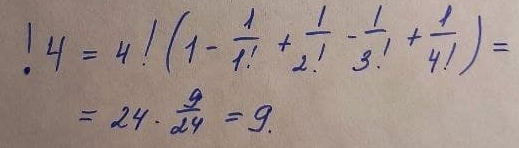 !4 = 4!(1 - 1/1! + 1/2! - 1/3! + 1/4!) =
= 24 · 9/24 = 9.